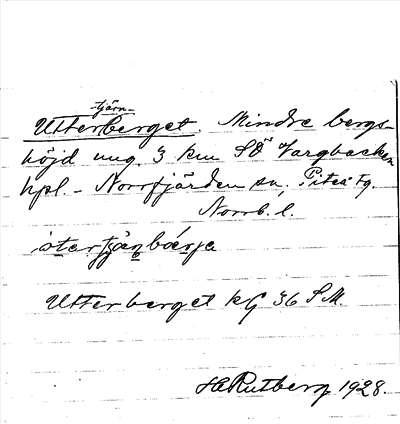 -tjärn-
Utterberget. Mindre bergs-
höjd ung. 3 km SÖ Vargbacken
hpl. - Norrfjärden sn, Piteå tg.
Norrb. l.
òtertjäṇbǽrje
Utterberget kG 36 SM.
HRutberg 1928.